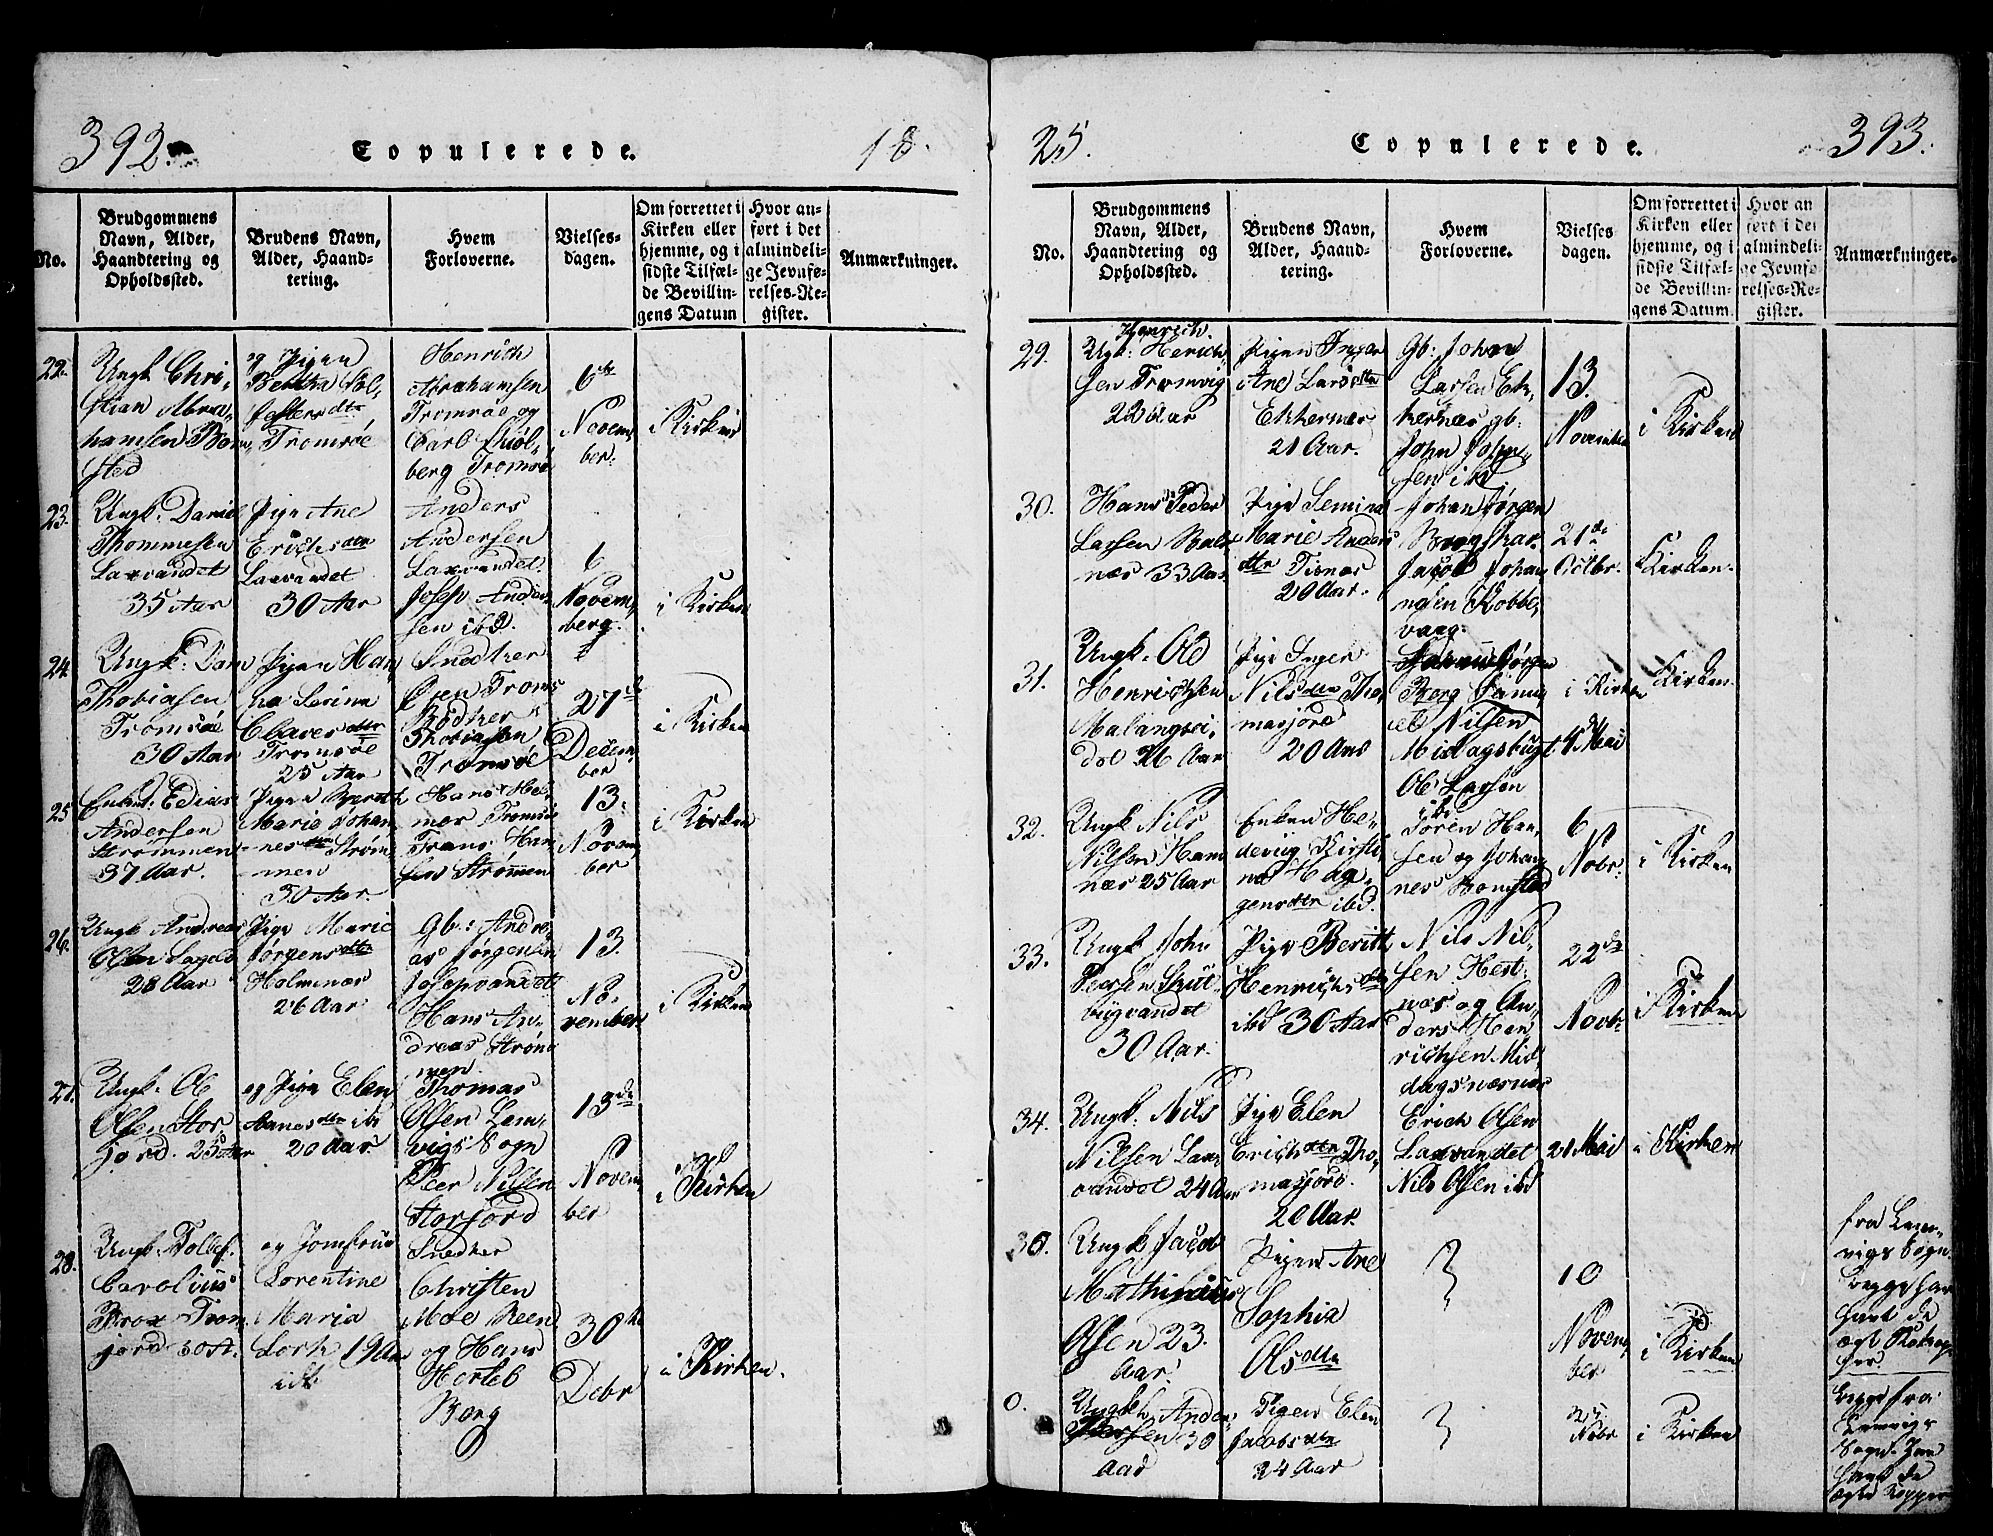 392
Copulerede.
18
No.
Brudgommens
Navn, Alder,
Haandtering og
Opholdssted.
Brudens Navn,
Alder, Haand-
tering.
Hvem
Forloverne.
Vielses-
dagen.
Om forrettet i
Kirken eller
hjemme, og i
sidste Tilfæl-
de Bevillin-
gens Datum
Hvor an-
ført i det
almindeli-
ge Jevnfø-
relses-Re-
gister.
Anmærkninger.
22.
Ungk Chri-
stian Abra-
hamsen Bom-
sted
og Pigen
Tromsøe
Henrich
Abrahamsen
Tromsøe og
Carl
berg Tromsøe
6te
Novem-
ber.
i Kirken
23.
Ungk. Daniel
Thommesen
Laxvandet
35 Aar
Pige Ane
Erichsdtr
Laxvandet
30 Aar
Anders
Andersen
Laxvandet
Joseph Ander-
sen ibd.
6
Novem-
berg.
i Kirken
24.
Ungk. Dan
Thobiasen
Tromsøe
30 Aar
Pigen Han-
na Serina
Clavesdtr
Tromsøe
25 Aar
Snedker
Tromsøe
Thobiasen
Tromsøe
27de
Decem-
ber
i Kirken
25
Enkm: Edias
Andersen
Strømmen
37 Aar.
Pige Bereth
Marie Johan-
nesdtr Strøm-
men
30 Aar.
Hans
Tromsøe
Frans Han-
sen Strømmen
13.
Novem-
ber
i Kirken
26.
Ungk Andreas
Olsen
28 Aar
Pige Marie
Jørgensdtr
Holmenæs
26 Aar
Gb: Andre-
as Jørgensen
Josepvandet
Hans An-
dreas Strøm-
men.
13.
No-
vember
i Kirken
27.
Ungk. Ole
Olsen Stor-
fjord. 25 Aar
og Pige Elen
Hansdtr ib
20 Aar
Thomas
Olsen Len-
vigs Sogn
Peer Nilsen
Storfjord
13de
Novem-
ber
i Kirken
28.
Ungk. Tollef
Carolius
og Jomfrue
Lorentine
Maria
Lorch 19 Aar
Snedker
Christen
Moe
og Hans
Hertel
Berg
30te
Debr
i Kirken.
25.
Copulerede.
393.
No.
Brudgommens
Navn, Alder,
Haandtering og
Opholdssted.
Brudens Navn,
Alder, Haand-
tering.
Hvem
Forloverne.
Vielses
dagen.
Om forrettet i
Kirken eller
hjemme, og i
sidste Tilfæl-
de Bevillin-
gens Datum.
Hvor an
ført i det
almindeli-
ge Jevnfø-
relses-Re-
gister.
Anmærkninger.
29.
Henrich
Ungk: Henrich-
sen Tromvig
Pigen Inger
Ane Larsdtr
21 Aar.
Gb: Johan
Larsen Ek-
kernæs gb:
John
sen ibd
13.
November
i Kirken
30.
Hans Peder
Larsen Bals-
næs 33 Aar
Pige Semina
Marie Anders
dtr Tisnæs
20 Aar.
Johan Jørgen
Jacob Johan
nesen Kobbe-
vaag.
21de
Octbr.
Kirken.
31.
Ungk. Ole
Henrichsen
Malangsei-
det
Pige Inger
Nilsdtr Tho-
masjord
20 Aar
Berg
Nilsen
Midagsbugt
Ole Larsen
ib.
4 Mai
i Kirken
Kirken.
32.
Ungk Nils
Nilsen Ham
næs 25 Aar
Enken He-
devig Kirsti-
na Hag-
gensdtr ibd.
Søren Han-
sen og Johan-
nes Bomsted
6
Nobr.
i Kirken
33.
Ungk John
Persen
30 Aar.
Pige Beritt
Henrichsdtr
ibd 30 Aar
Nils Nil-
sen Hest-
næs og An-
ders Hen-
richsen Mid-
dagsnæsnæs
22de
Novbr
i Kirken
34.
Ungk. Nils
Nilsen Lax-
vandet 24 Aar
Pige Elen
Erichdtr Tho-
masjord.
20 Aar
Erich Olsen
Laxvandet
Nils Olsen ibd
21 Mai
i Kirken
30.
Ungk Jacob
Mathias
Olsen 23.
Aar.
Pigen Ane
Sophia
Olsdtr
10
Novem-
ber
i Kirken
fra Len-
vigs Sogn.
begge har
havt de
ægte Kokop-
per.
0.
Ungk. Ander
30
Aar
Pigen Elen
Jacobsdtr
24 Aar
Nobr
i Kirken
begge fra
Lenvigs
Sogn. Har
havt de
ægte Koppe